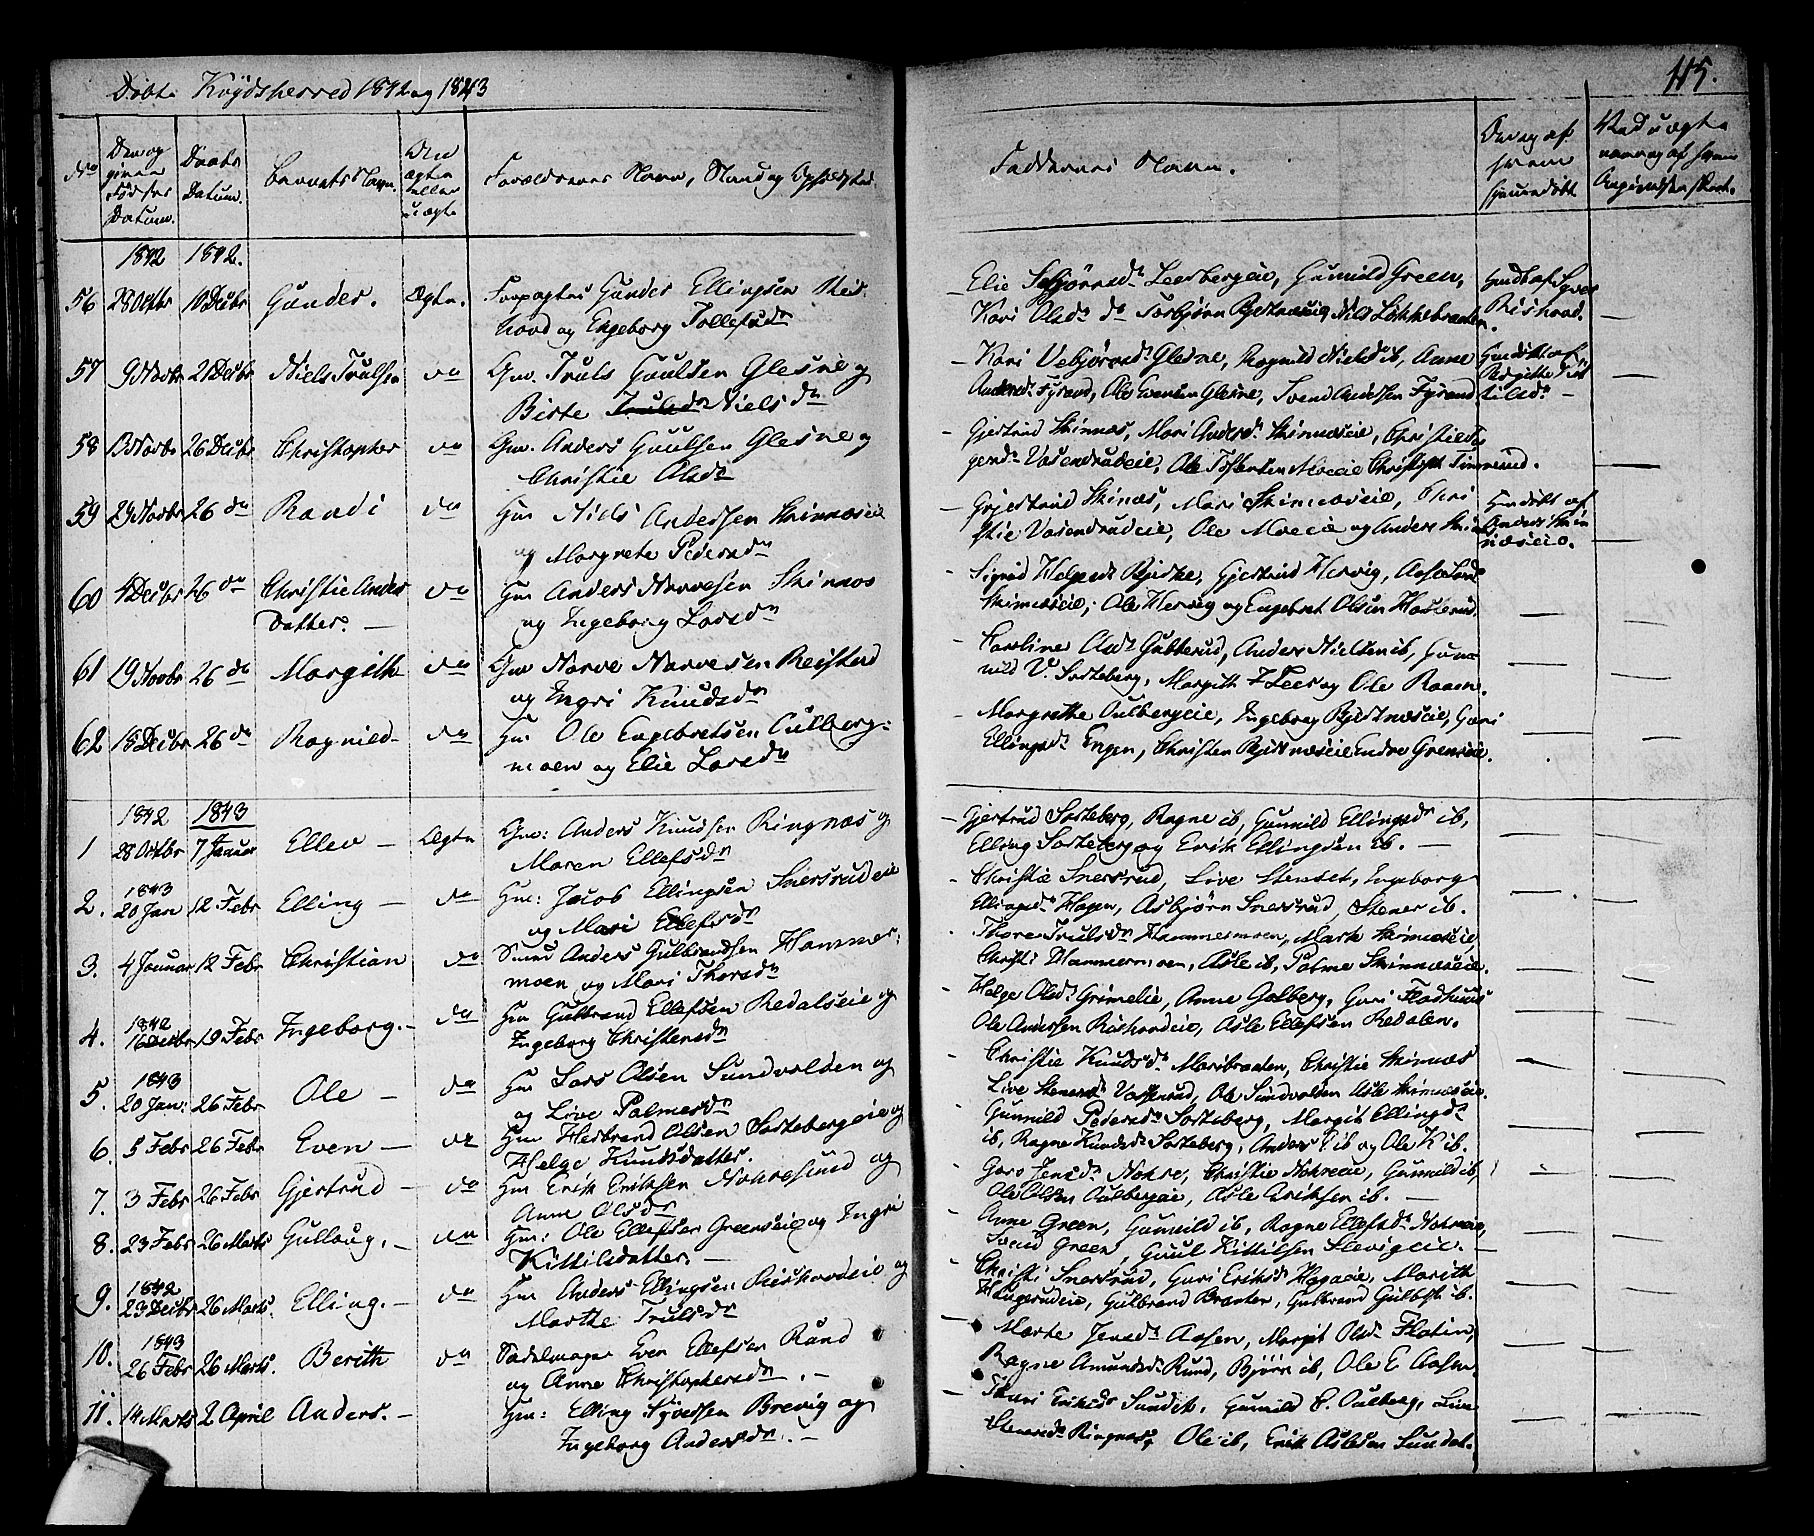 Døbte Krydsherred 1842 og 1843
115.
No
Den og
given
Fødsels
Datum.
Daabs
Datum.
Barnets Navn.
Om
ægte
eller
uægte
Forældrenes Navn, Stand og Opholdsted.
Faddernes Navn.
Om og af
hvem
hjemmedøbt
Ved uægte
1842 1842.
56 28 Octbr 10 Decbr Gunder. Ægte. Gunder Ellingsen
og Engeborg Tollefsdr
Elie Leerbergeie, Gunnild Green,
Kari Olsdr do Torbjørn Niels Løkkebraaten.
57 9 Novbr 21 Decbr Niels Trulsen do Gm. Truls Guulsen Glesne og
Birte Nielsdr
Kari Vebjørnsdr Glesne, Ragnild Nielsd ib, Anne
Andersdr Fyrand, Ole Evensen Glesne, Svend Andersen Fyrand
58 13 Novbr 26 Decbr Christopher do Gm. Anders Guulsen Glesne og
Christie Olsdr
Gjertrud Skinnæs, Mari Andersdr Skinnæseie,
Vasendrudeie, Ole Moeie
59 29 Novbr 26 do Randi do Hm Niels Andersen Skinnæseie
og Margrete Pedersdr
Gjertrud Skinæs, Mari Skinnæseie, Chri
stie Vasendrudeie, Ole Moeie og Anders
Hmdøbt af
Anders Skin
næseie.
60 4 Decbr 26 do Christie Anders do Hm Anders Narvesen Skinnæs
Datter. og Ingeborg Larsdr
Sigrid Helgesdr Bjerke, Gjertrud Hervig,
Skinnæseie, Ole Hervig og Engebret Olsen
61 19 Novbr 26 do Margith do Gm Narve Narvesen Reistad
og Ingri Knudsdr
Karoline Gubberud, Anders Nielsen ib, Gun
nild V. Sorteberg, Margith og Ole Raaen.
62 18 Decbr 26 do Ragnild do Hm Ole Engebretsen Oulberg-
moen og Elie Larsdr
Margrethe Oulbergeie, Ingeborg Bjertnæseie, Guri
Ellingsdr Engen, Christen Bjertnæseie Endre Greneie.
1842 1843
1 28 Octbr 7 Januar Ellev Ægte Gm: Anders Knudsen Ringnæs og
Maren Ellefsdr
Gjertrud Sorteberg, Ragne ib, Gunnild Ellingsdr ib,
Elling Sorteberg og Erik Ellingsen ib.
1843
2. 20 Jan 12 Febr Elling do Hm: Jacob Ellingsen Snersrudeie
og Mari Ellefsdr
Christie Snersrud, Live Stenset, Ingeborg
Ellingsdr Hagen, Asbjørn Snersrud, Stener ib.
3. 4 Januar 12 Febr Christian do Smed Anders Gulbrandsen Hammer-
moen og Mari Thorsdr
Thore Trulsdr Hammermoen, Marte Skinnæseie
Christi Hammermoen, Asle ib, Palme Skinnæseie.
1842
4. 16 Decbr 19 Febr Ingeborg. do Hm Gulbrand Ellefsen Redalseie og
Ingeborg Christensdr
Helge Olsdr Grimelie, Anne Golberg, Guri Fladhuus
Ole Andersen Asle Ellefsen Redalen.
1843
5. 20 Jan: 26 Febr Ole do Hm Lars Olsen Sundvolden og
og Live Palmersdr
Christie Knudsdr Maribraaten, Christie Skinnæs
Live Stenersdr Ole Sundvolden Asle Skinnæseie.
6. 5 Febr 26 Febr Even do Hm Herbrand Olsen Sortebergeie og
Helge Knudsdatter.
Gunnild Pedersdr Sorteberg, Margit Ellingsdr
ib, Ragne Knudsdr Sorteberg, Anders ib og Ole K ib.
7. 3 Febr 26 Febr Gjertrud do Hm Erik Eriksen Nokresund og
Anne Olsdr
Guro Jensdr Nokre, Christie Nokreeie, Gunnild ib,
Ole Olsen Oulbergeie, Asle Eriksen ib.
8. 23 Febr 26 Marts Gulloug. do Hm: Ole Ellefsen Greenseie og Ingri
Kittilsdatter.
Anne Green, Gunnild ib, Ragne Ellefsdr Nokreeie,
Svend Green, Guul Kittilsen Slevigeie.
1842
9. 23 Decbr 26 Marts. Elling. do Hm Anders Ellingsen og
Marthe Trulsdr
Christi Snersrud, Guri Eriksdr Hagaeie, Marith
Haugerudeie, Gulbrand Braaten, Gulbrand Gulbs. ib.
1843
10. 26 Febr 26 Marts. Berith do Sadelmager Even Ellefsen Rund
og Anne Christophersdr.
Marte Jensdr Aasen, Margit Olsdr Flatin,
Ragne Amundsdr Rund, Bjørn ib, Ole E Aasen
11. 14 Marts 2 April Anders. Hm: Elling Syversen Brevig og
Ingeborg Andersdr.
Eriksdr Sundet, Gunnild Oulberg, Live
Stenersdr Ringnæs, Ole ib, Erik Aslesen Sundet.